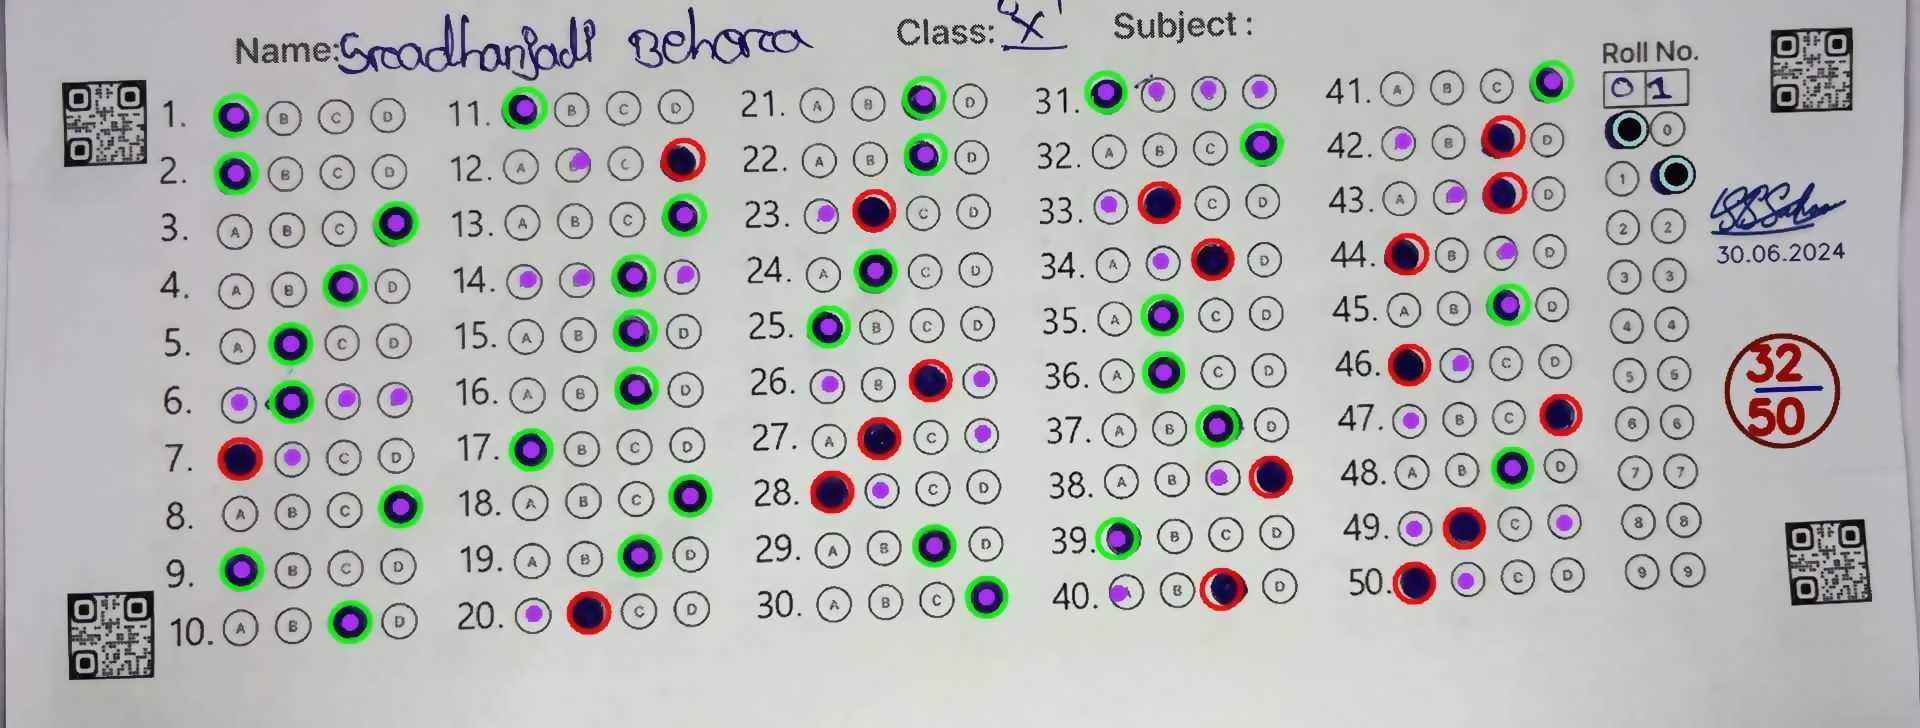 Name: Sradhanjali Behera
Class: X
Subject :
1. B C D
2. B C D
3. A B C
4. A B D
5. A C D
6.
7. C D
8. A B C
9. B C D
10. A B D
11. B C D
12. A C
13. A B C
14.
15. A B D
16. A B D
17. B C D
18. A B C
19. A B D
20. C D
21. A B D
22. A B D
23. C D
24. A C D
25. B C D
26. B
27. A C
28. C D
29. A B D
30. A B C
31.
32. A B C
33. C D
34. A D
35. A C D
36. A C D
37. A B D
38. A B
39. B C D
40. B D
41. A B C
42. B D
43. A D
44. B D
45. A B D
46. C D
47. B C
48. A B D
49. C
50. C D
Roll No.
0 1
0
1
2 2
3 3
4 4
5 5
6 6
7 7
8 8
9 9
30.06.2024
32
50